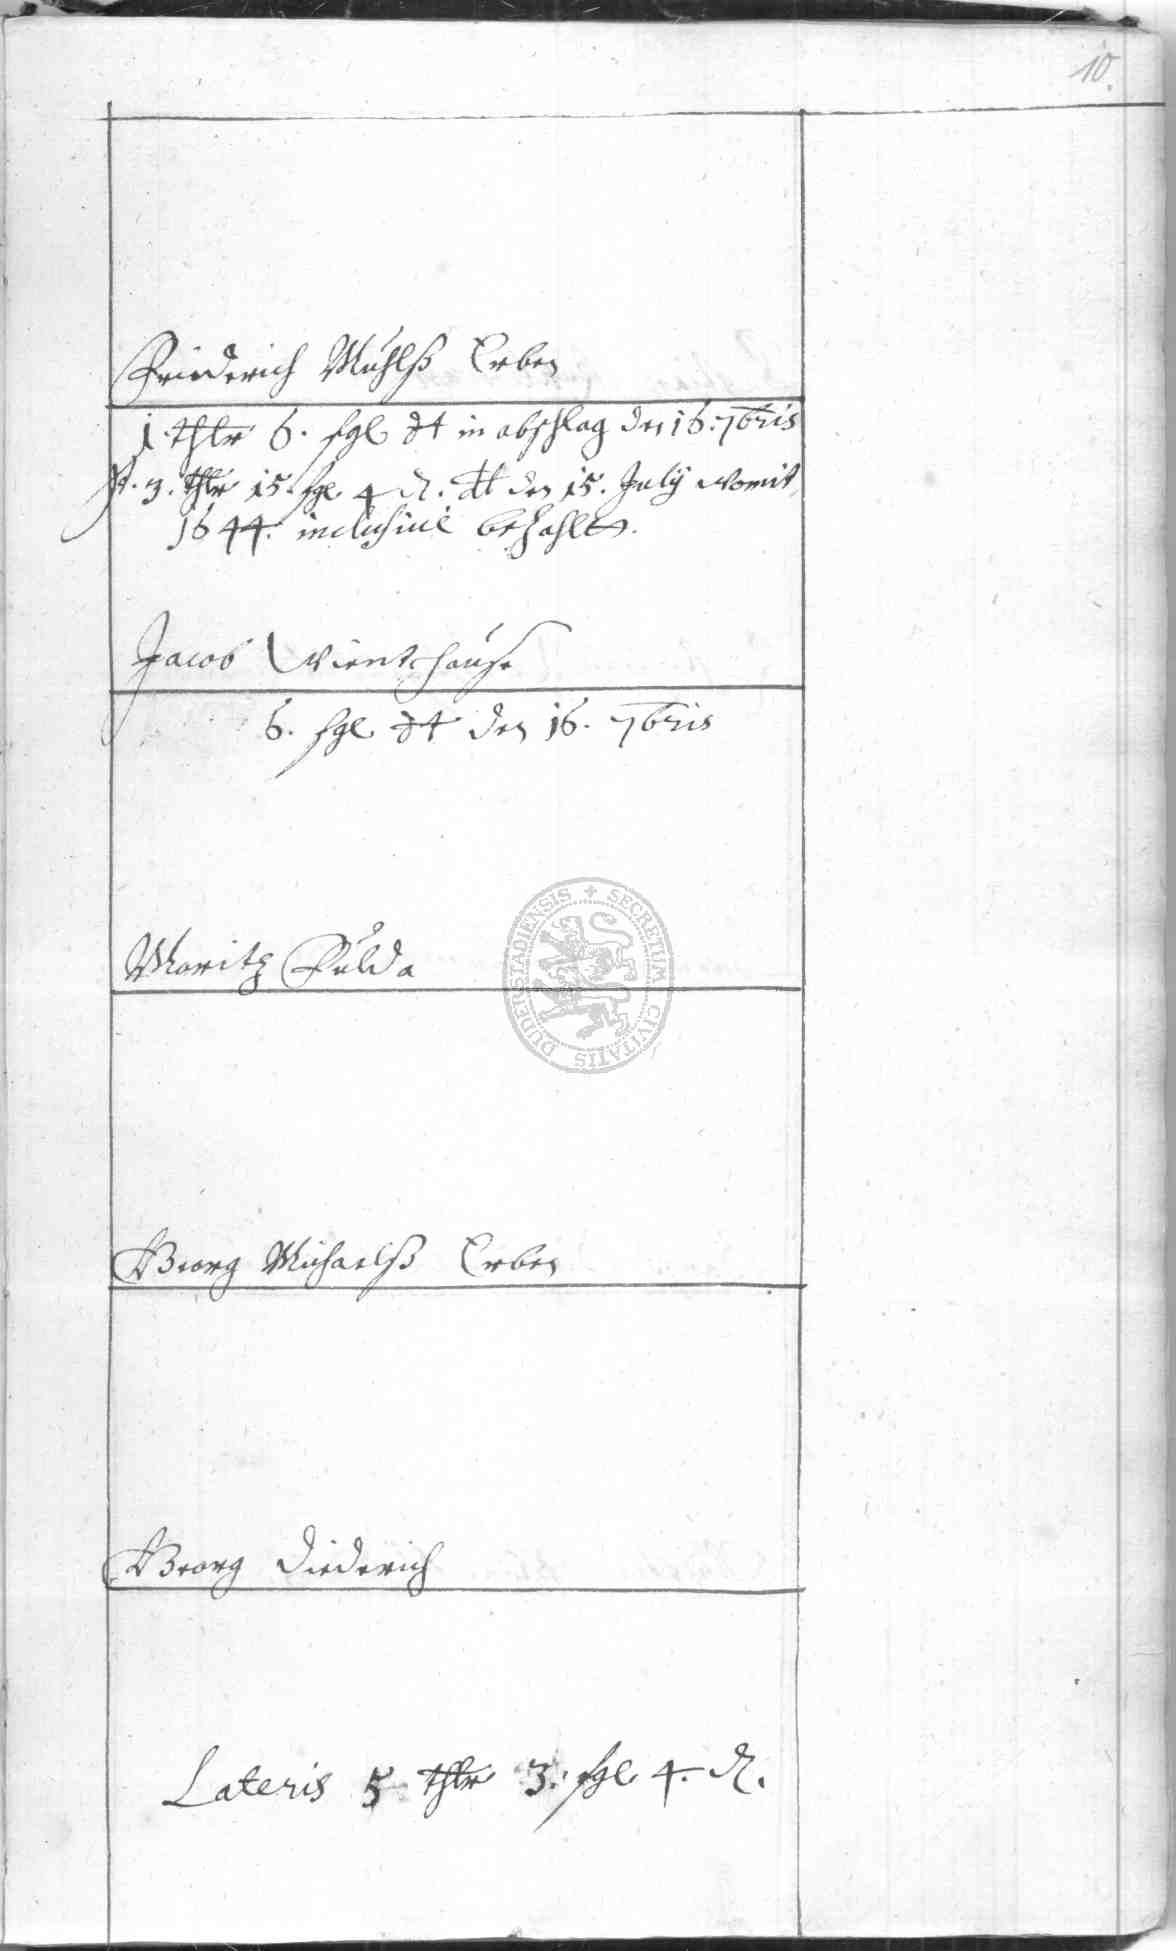 10.
Friederich Mühlß Erben
1. thlr 6. sgl dt in abschlag den 16. 7bris
3. thlr 15. sgl 4 d. dt den 15. July womit
1644. inclusiuè bezahlt.
Jacob Wienthause
6. sgl dt den 16. 7bris
Moritz Fulda
SECRETUM CIVITATIS DUDERSTADIENSIS
Georg Michaelß Erben
Georg Diederich
Lateris 5 thlr 3. sgl 4. d.